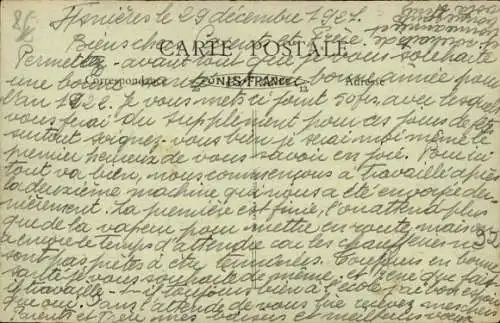 Asnières le 29 décembre 1921.
Biens chers Parents et Frère
CARTE POSTALE
Permettez avant tout que je vous souhaite
une bonne et heureuse bonne année pour
Correspondance TUNIS-FRANCE Adresse
l'an 1922. Je vous mets ci joint 50frs avec lesquels
vous ferai du supplément pour ces jours de fête
surtout soignez vous bien je serai moi même le
premier heureux de vous savoir en joie. Pour ici
tout va bien, nous commençons a travaillé après
la deuxième machine qui nous a été envoyée der-
nièrement. La première est finie, l'on attend plus
que de la vapeur pour mettre en route, mais on
a encore le temps d'attendre car les chaudières ne
sont pas prêtes à être terminées. Toujours en bonne
santé je vous souhaite de même, et René que fait
il travaille t-il toujours bien à l'école j'ai bon espoir
que oui. Dans l'attente de vous lire recevez mes chers
Parents et Frère mes baisers et meilleurs vœux